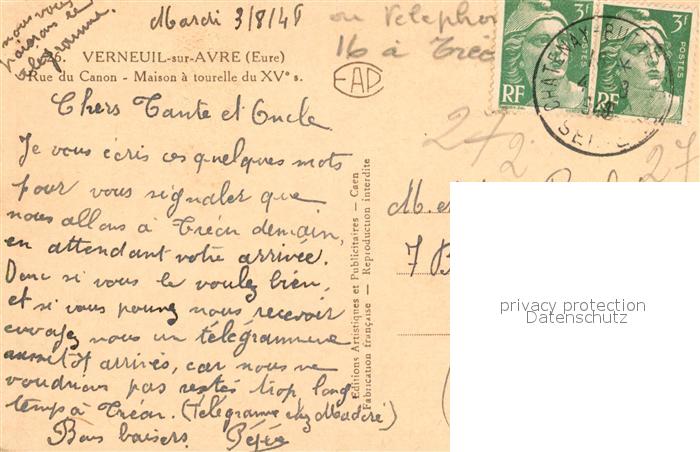 Mardi 3/8/48
nous vous
faisons un
télégramme.
ou Telephon
16 à Tréon
626. VERNEUIL-sur-AVRE (Eure)
Rue du Canon - Maison à tourelle du XVᵉ s.
EAP
3F
3F
POSTES
POSTES
RF
RF
CHATENAY-
SEINE
Chers Tante et Oncle
Je vous écris ces quelques mots
pour vous signaler que
nous allons à Tréon demain,
en attendant votre arrivée.
Donc si vous le voulez bien,
et si vous pouvez nous recevoir
envoyez nous un télégramme
aussitôt arrivés, car nous ne
voudrions pas restés trop long-
temps à Tréon. (Télégramme chez Madéré)
Bons baisers. Pépée
Editions Artistiques et Publicitaires - Caen
Fabrication française - Reproduction interdite
272
27
M. et
7 B
privacy protection
Datenschutz